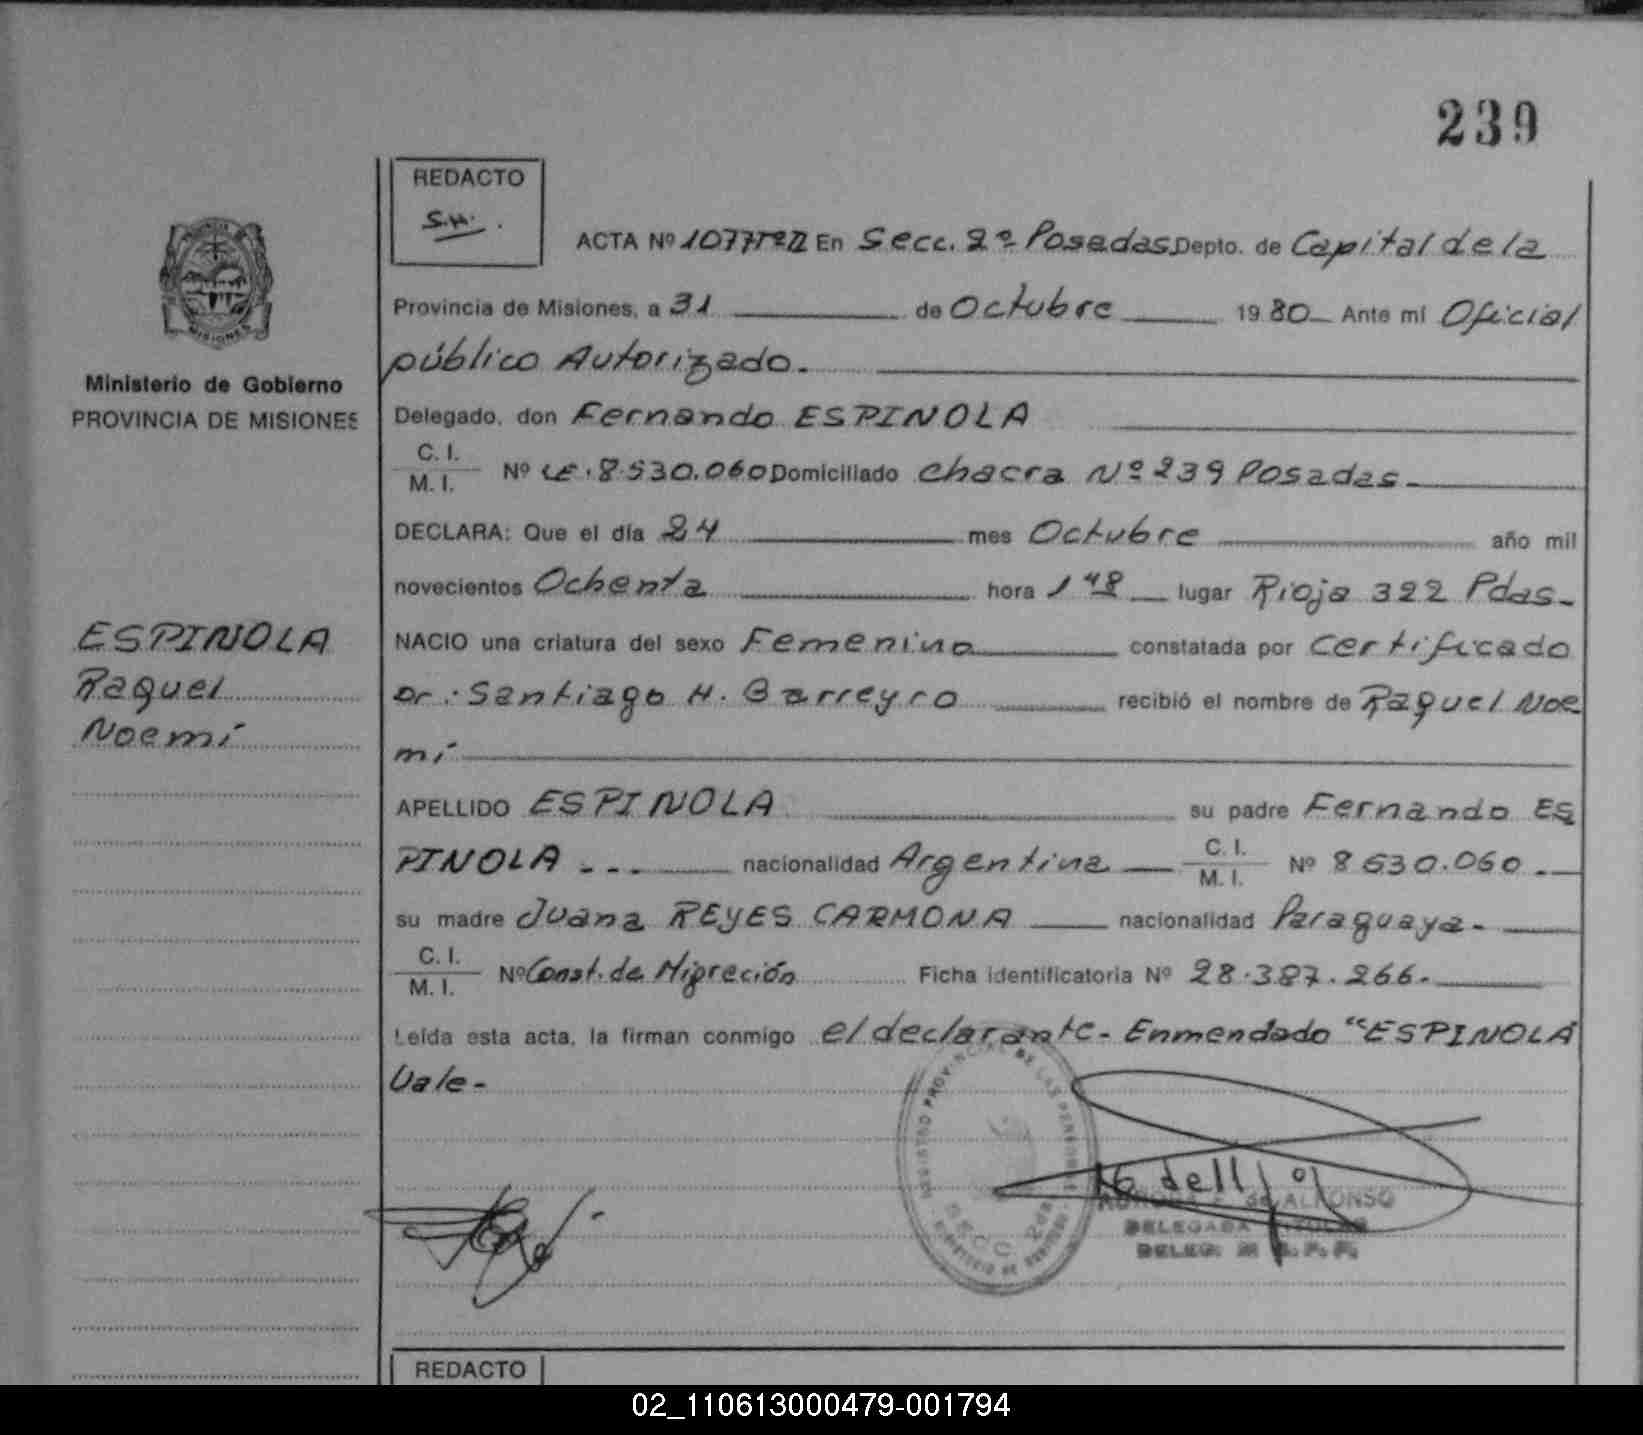 239
REDACTO
S.H.
ACTA Nº 1077 En Secc. 2º Posadas Depto. de Capital de la
Provincia de Misiones, a 31 de Octubre 1980 Ante mi Oficial
público Autorizado.
Delegado, don Fernando ESPINOLA
C. I.
M. I. Nº LE. 8.530.060 Domiciliado Chacra Nº 239 Posadas
DECLARA: Que el día 24 mes Octubre año mil
novecientos Ochenta hora 1 48 lugar Rioja 322 Pdas-
NACIO una criatura del sexo Femenino constatada por Certificado
Dr.: Santiago H. Barreyro recibió el nombre de Raquel Noe
mí
APELLIDO ESPINOLA su padre Fernando ES
PINOLA --- nacionalidad Argentina C. I.
M. I. Nº 8530.060.
su madre Juana REYES CARMONA nacionalidad Paraguaya-
C. I.
M. I. Nº Const. de Migración Ficha identificatoria Nº 28.387.266.
Leída esta acta, la firman conmigo el declarante- Enmendado "ESPINOLA
Vale-
MISIONES
Ministerio de Gobierno
PROVINCIA DE MISIONES
ESPINOLA
Raquel
Noemí
REGISTRO PROVINCIAL DE LAS PERSONAS
SECC. 2da
de ALFONSO
DELEGADA TITULAR
DELEG.
REDACTO
02_110613000479-001794